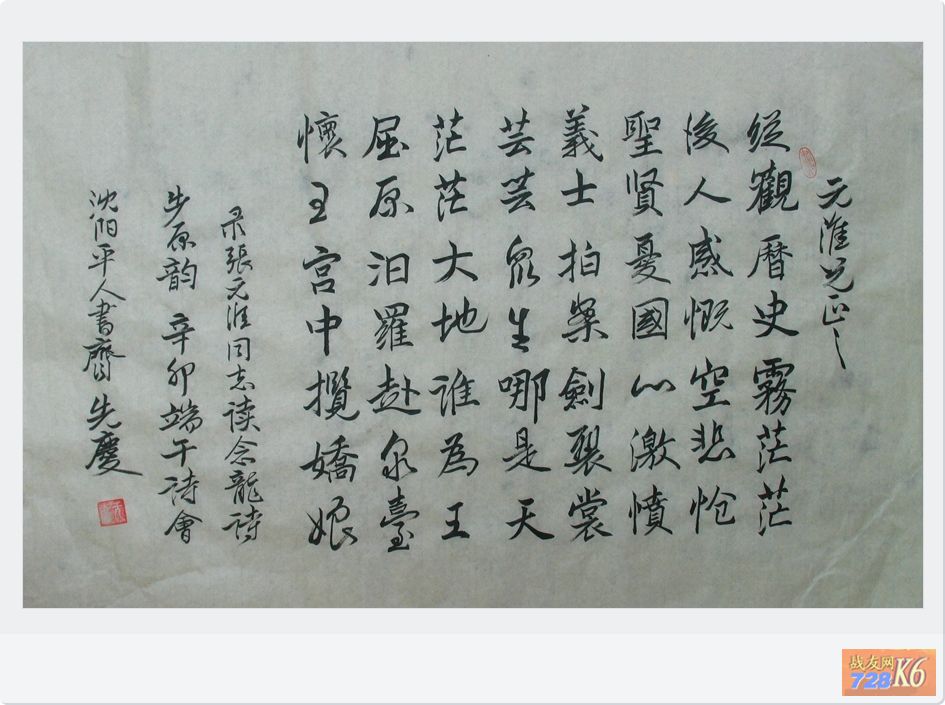 元淮兄正之
纵觀曆史霧茫茫
後人感慨空悲怆
聖賢憂國心激憤
義士拍案劍裂裳
芸芸眾生哪是天
茫茫大地誰為王
屈原汨羅赴泉臺
懷王宮中攬嬌娘
录張元淮同志读念龍诗
步原韵 辛卯端午诗會
沈阳平人書齋先慶
战友网
728K6